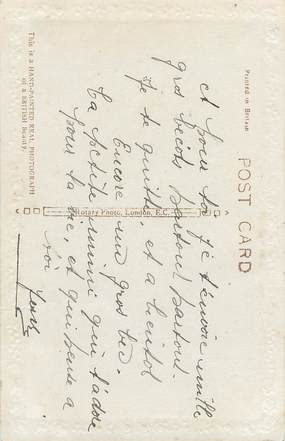 POST CARD
Printed in Britain
This is a HAND-PAINTED REAL PHOTOGRAPH
of a BRITISH Beauty.
Rotary Photo, London, E.C.
et pour toi je t'envoie mille
gros becots partout partout.
Je te quitte, et a bientot
Encore un gros bec.
Ta petite mimi qui t'adore
pour la vie, et qui pense a
toi